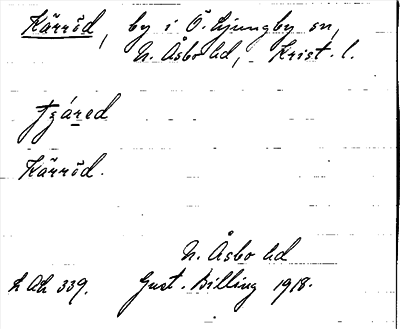 Kärröd, by i Ö. Ljungby sn,
N. Åsbo hd, Krist. l.
Kärröd.
N. Åsbo hd
339. Gust. Billing 1918.